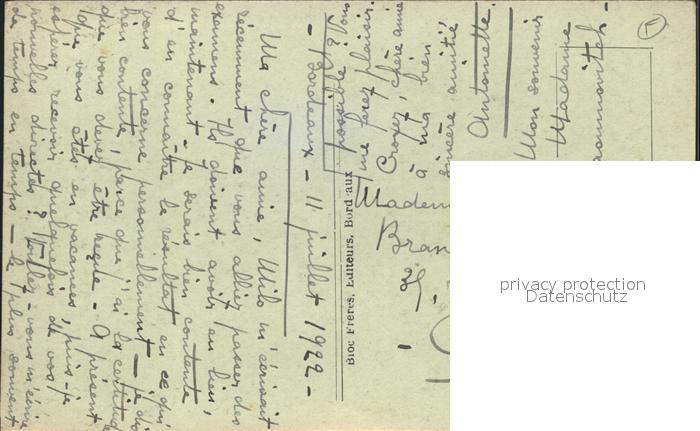 - Bordeaux - 11 juillet 1922 -
Ma chère amie, Milo m'écrivait
récemment que vous alliez passer des
examens. Ils doivent avoir eu lieu,
maintenant - je serais bien contente
d'en connaître le résultat en ce qui
vous concerne personnellement - je dis
bien contente, parce que j'ai la certitude
que vous devez être reçue - A présent
que vous êtes en vacances, puis-je
espérer recevoir quelquefois de vos
nouvelles directes ? Voulez-vous m'écrire
de temps en temps - le plus souvent
possible ? Vous
me ferez plaisir.
Croyez, chère amie
à ma bien
sincère amitié
Antoinette.
Mon souvenir
Madame
Bloc Frères, Editeurs, Bordeaux
Madem
Bran
privacy protection
Datenschutz